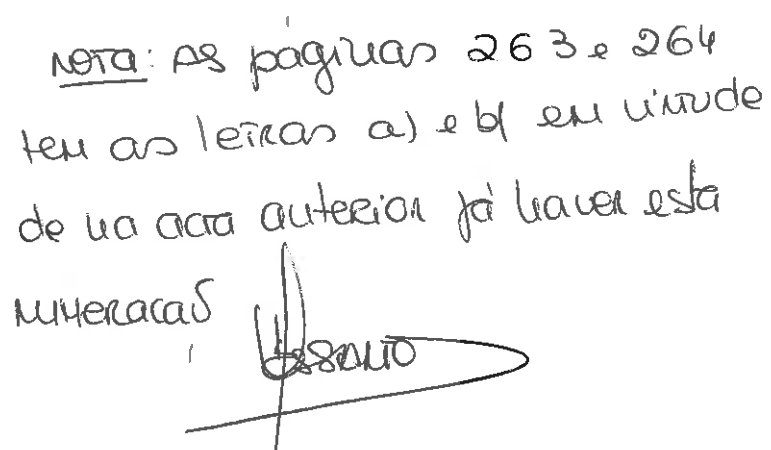 NOTA: As páginas 263 e 264
tem as letras a) e b) em virtude
de na acta anterior já haver esta
numeração